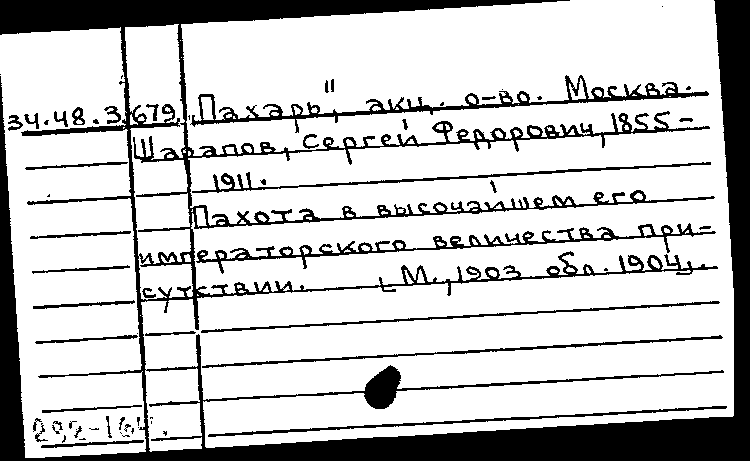 34.48.3.679. „Пахарь", акц. о-во. Москва.
Шарапов, Сергей Федорович, 1855-
1911.
Пахота в высочайшем его
императорского величества при=
сутствии. [М., 1903 обл. 1904].
292-164.